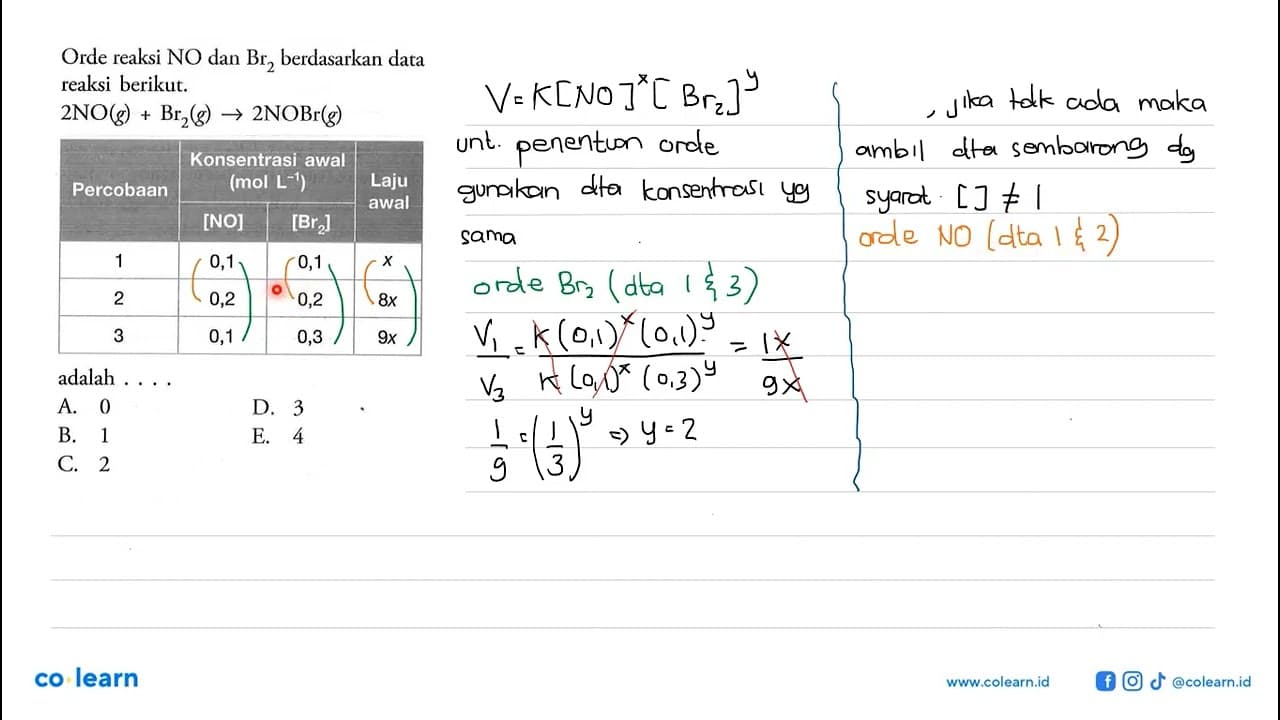 Orde reaksi NO dan Br₂ berdasarkan data
reaksi berikut.
2NO(g) + Br₂(g) → 2NOBr(g)
Percobaan
Konsentrasi awal
(mol L⁻¹)
Laju
awal
[NO] [Br₂]
1 0,1 0,1 x
2 0,2 0,2 8x
3 0,1 0,3 9x
adalah . . . .
A. 0 D. 3
B. 1 E. 4
C. 2
V = K[NO]ˣ[Br₂]ʸ
unt. penentuan orde
gunakan dta konsentrasi yg
sama
orde Br₂ (dta 1 & 3)
V₁/V₃ = K(0,1)ˣ(0,1)ʸ / K(0,1)ˣ(0,3)ʸ = 1x/9x
1/9 = (1/3)ʸ ⇒ y = 2
, jika tdk ada maka
ambil dta sembarang dg
syarat [ ] ≠ 1
orde NO (dta 1 & 2)
co learn
www.colearn.id
@colearn.id